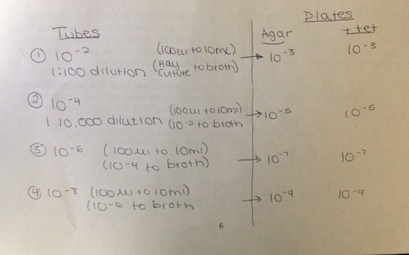 Plates
Tubes Agar + tet
① 10⁻² (100ul to 10mL) → 10⁻³ 10⁻³
1:100 dilution (Hay Culture to broth)
② 10⁻⁴ (100ul to 10ml) → 10⁻⁵ 10⁻⁵
1 10,000 dilution (10⁻² to broth
③ 10⁻⁶ (100ul to 10ml) → 10⁻⁷ 10⁻⁷
(10⁻⁴ to broth)
④ 10⁻⁸ (100ul to 10ml) → 10⁻⁹ 10⁻⁹
(10⁻⁶ to broth
6